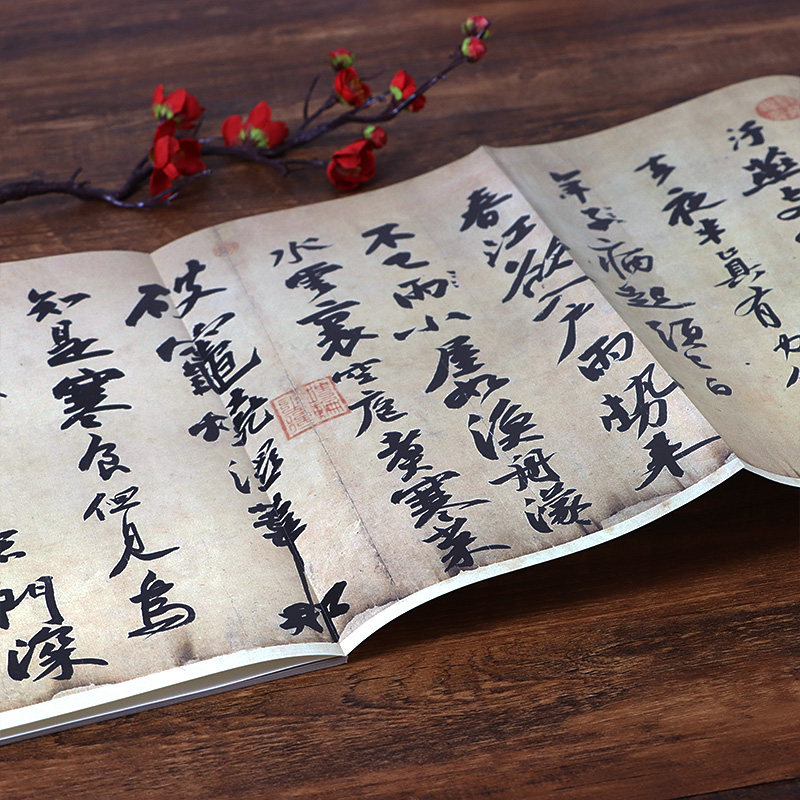 汙燕
去夜半真有力
年子病起須已白
春江欲入戶雨勢來
不已雨小屋如漁舟濛
水雲裏空庖煮寒菜
破竈燒濕葦那
知是寒食但見烏
門深